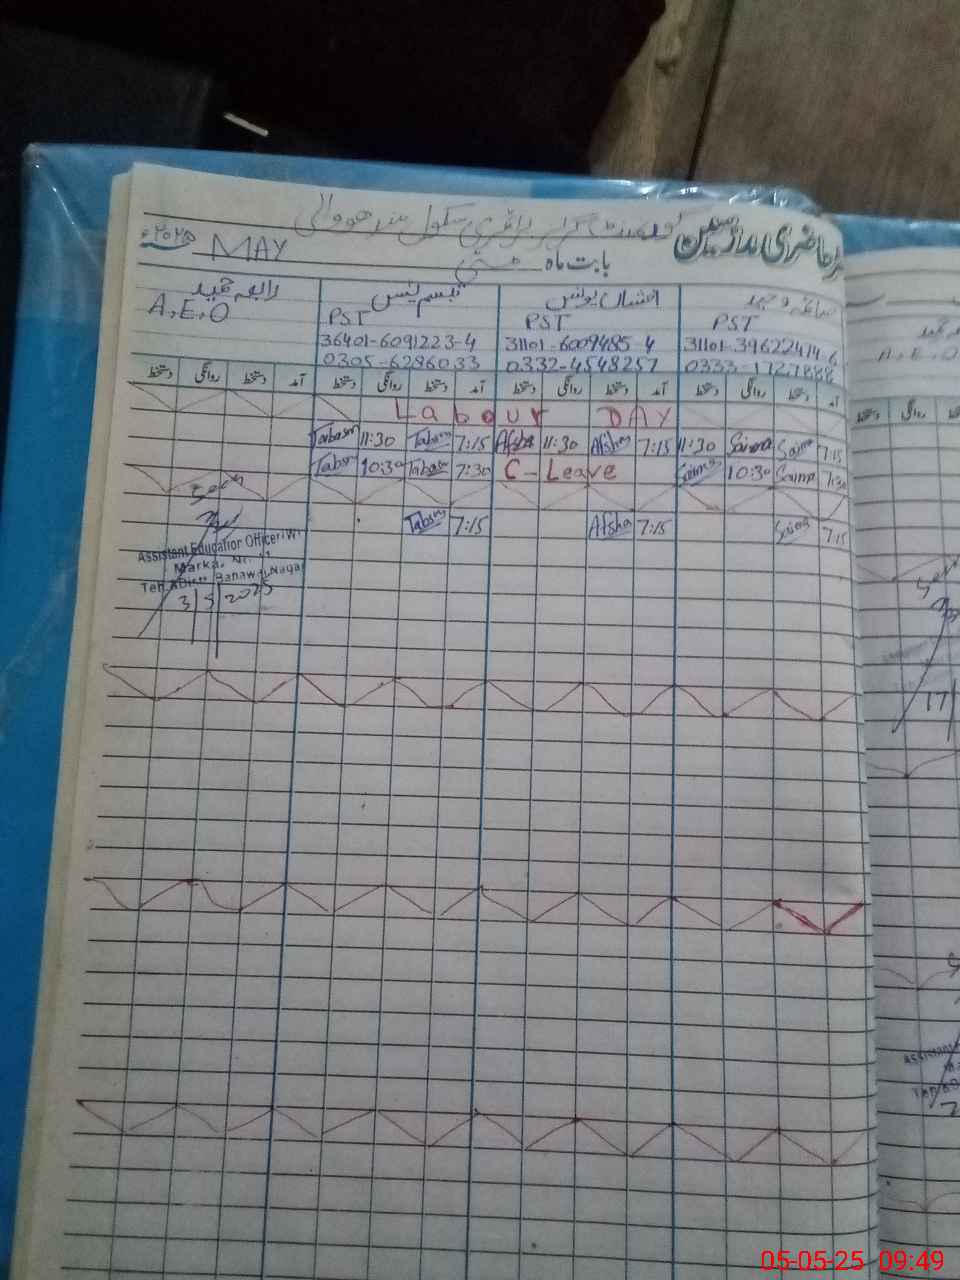 گورنمنٹ گرلز پرائمری سکول
حاضری مدرسین
بابت ماہ مئی MAY ۲۰۲۵ء
رابعہ حمید
A,E,O
PST
36401-6091223-4
0305-6286033
افشاں یونس
PST
31101-6009485-4
0332-4548257
PST
0333-1727888
آمد دستخط روانگی دستخط آمد دستخط روانگی دستخط آمد دستخط روانگی دستخط آمد دستخط روانگی دستخط
Labour DAY
Tabasm 11:30 Tabsm 7:15 Afsha 11:30 Afsha 7:15 11:30 Saima Saima 7:15
Tabsm 10:30 Tabasm 7:30 C-Leave Saima 10:30 Saima 7:30
Seen
Tabsm 7:15 Afsha 7:15 Saima 7:15
Assistant Education Officer (W)
Marka
3/5/2025
A,E,O
17
05-05-25 09:49